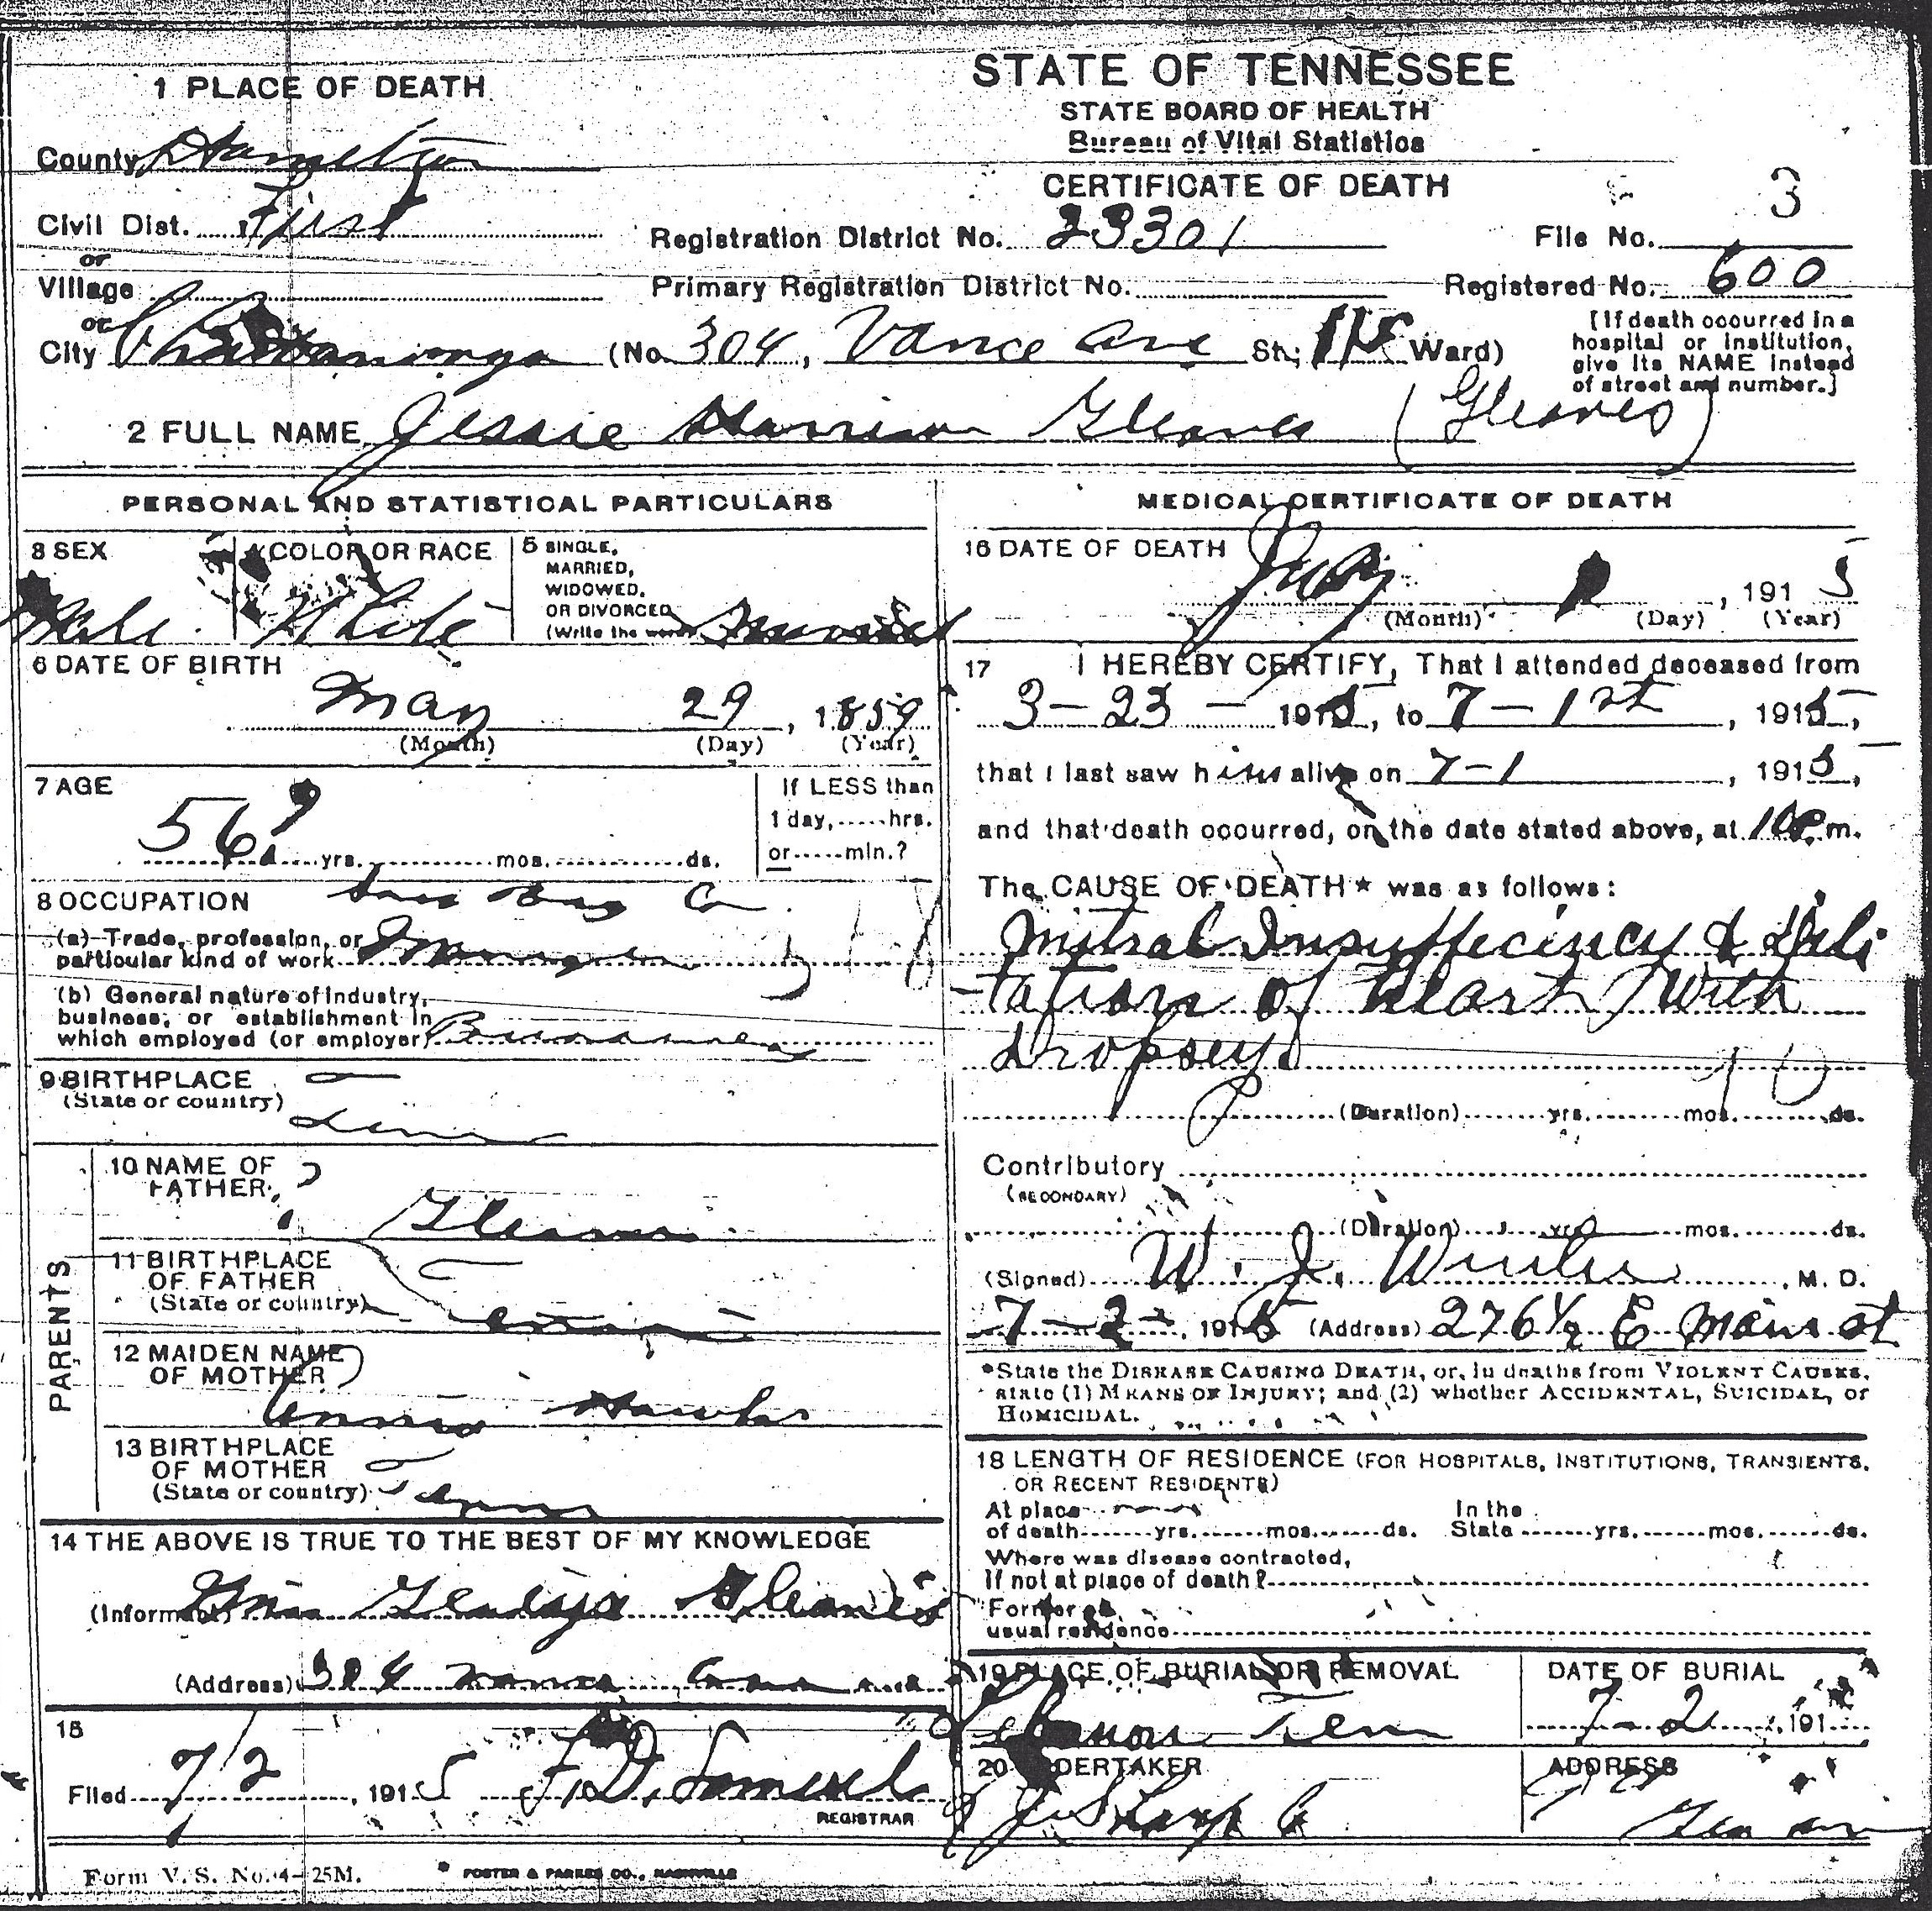 STATE OF TENNESSEE
STATE BOARD OF HEALTH
Bureau of Vital Statistics
CERTIFICATE OF DEATH
1 PLACE OF DEATH
County Hamilton
Civil Dist. First
or
Village
or
City Chattanooga (No. 304, Vance Ave St.; Ward)
Registration District No. 23301
File No. 3
Primary Registration District No.
Registered No. 600
[If death occurred in a
hospital or institution,
give its NAME instead
of street and number.]
2 FULL NAME Jessie Harrison Gleaves (Gleaves)
PERSONAL AND STATISTICAL PARTICULARS
3 SEX
Male
4 COLOR OR RACE
White
5 SINGLE,
MARRIED,
WIDOWED,
OR DIVORCED
(Write the word)
6 DATE OF BIRTH
May 29, 1859
(Month) (Day) (Year)
7 AGE
56 yrs. mos. ds.
If LESS than
1 day, hrs.
or min.?
8 OCCUPATION
(a) Trade, profession, or
particular kind of work
(b) General nature of industry,
business, or establishment in
which employed (or employer)
9 BIRTHPLACE
(State or country)
PARENTS
10 NAME OF
FATHER ? Gleaves
11 BIRTHPLACE
OF FATHER
(State or country)
12 MAIDEN NAME
OF MOTHER
13 BIRTHPLACE
OF MOTHER
(State or country) Tenn
14 THE ABOVE IS TRUE TO THE BEST OF MY KNOWLEDGE
(Informant) Gladys Gleaves
(Address) 304 Vance
15
Filed 7/2, 1915 F. D.
REGISTRAR
MEDICAL CERTIFICATE OF DEATH
16 DATE OF DEATH
July 1, 1915
(Month) (Day) (Year)
17 I HEREBY CERTIFY, That I attended deceased from
3-23- 1915, to 7-1st, 1915,
that I last saw him alive on 7-1, 1915,
and that death occurred, on the date stated above, at 10 P.m.
The CAUSE OF DEATH* was as follows:
Mitral Insufficiency & Dili
-tation of heart with
dropsey
(Duration) yrs. mos. ds.
Contributory
(SECONDARY)
(Duration) yrs. mos. ds.
(Signed) W. J. , M. D.
7-2-, 1915 (Address) 276½ E Main st
*State the DISEASE CAUSING DEATH, or, in deaths from VIOLENT CAUSES,
state (1) MEANS OF INJURY; and (2) whether ACCIDENTAL, SUICIDAL, or
HOMICIDAL.
18 LENGTH OF RESIDENCE (FOR HOSPITALS, INSTITUTIONS, TRANSIENTS,
OR RECENT RESIDENTS)
At place In the
of death yrs. mos. ds. State yrs. mos. ds.
Where was disease contracted,
If not at place of death?
Former or
usual residence
19 PLACE OF BURIAL OR REMOVAL
Lebanon Tenn
DATE OF BURIAL
7-2, 191
20 UNDERTAKER
J Sharp Co
ADDRESS
Form V. S. No. 4-25M.
FOSTER & PARKES CO., NASHVILLE